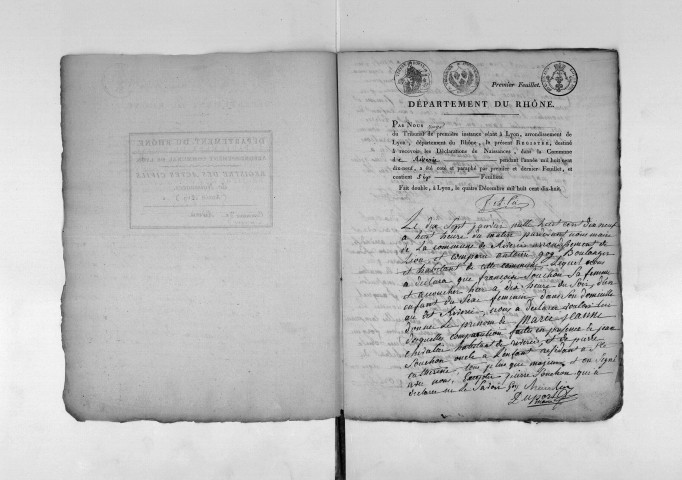 Premier Feuillet.
DÉPARTEMENT DU RHÔNE.
PAR NOUS juge
du Tribunal de première instance séant à Lyon, arrondissement de
Lyon, département du Rhône, le présent REGISTRE, destiné
à recevoir les Déclarations de Naissances, dans la Commune
de Riverie pendant l'année mil huit cent
dix-neuf, a été coté et paraphé par premier et dernier Feuillet, et
contient Feuillets.
Fait double, à Lyon, le quatre Décembre mil huit cent dix-huit.
Le dix Sept janvier mille huit cent dix neuf
a huit heure du matin pardevant nous maire
de La commune de Riverie arrondissement de
Lion, est comparu antoine goy Boulanger
et habitant de cette commune Lequel nous
a declara que françoise Souchon Sa femme
et acoucher hier a dix heure du Soir d'un
enfant du Sexe feminin dans Son domicille
au dit Riverie, nous a declarer vouloir Lui
donner Le prenom de Marie jeanne
Lesquelles comparution faite en presence de jean
chevalier habitant de riverie, et de pierre
Souchon oncle a L'enfant residant a Ste
catherine, tous plus que majeurs et on Signé
avec nous, Excepté pierre Souchon qui a
declarer ne Le Savoir goy
Duport
maire
DÉPARTEMENT DU RHÔNE.
REGISTRE DES ACTES CIVILS